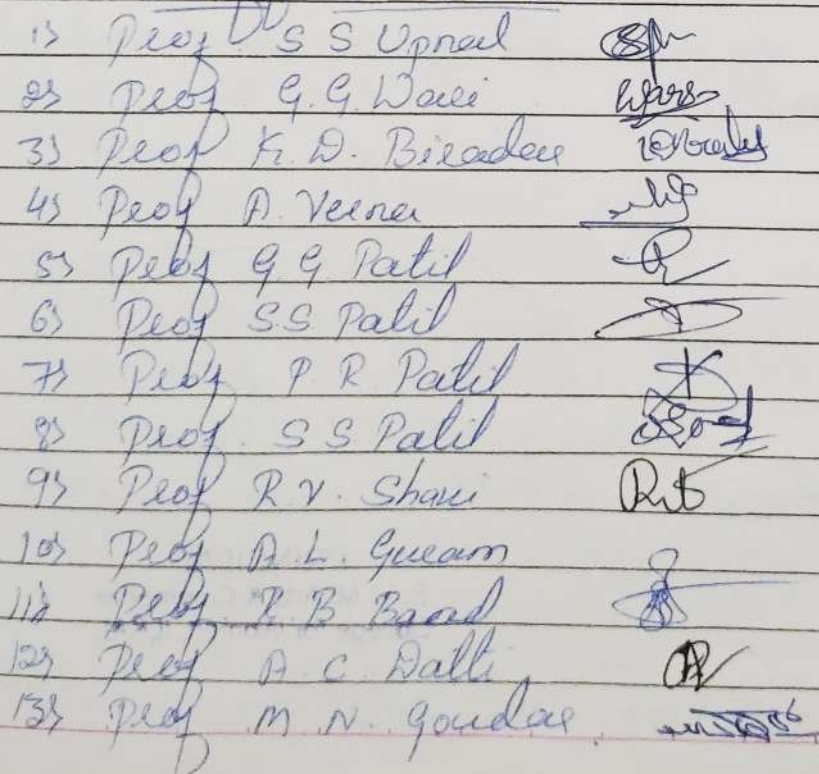 1) Prof S S Upnal
2) Prof G.G. Wali
3) Prof K. D. Biradar
4) Prof A. Veena
5) Prof G G Patil
6) Prof S.S. Patil
7) Prof P R Patil
8) Prof. S S Patil
9) Prof R V. Shavi
10) Prof A. L. Guram
11) Prof B
12) Prof A C. Dalli
13) Prof M N. Goudar